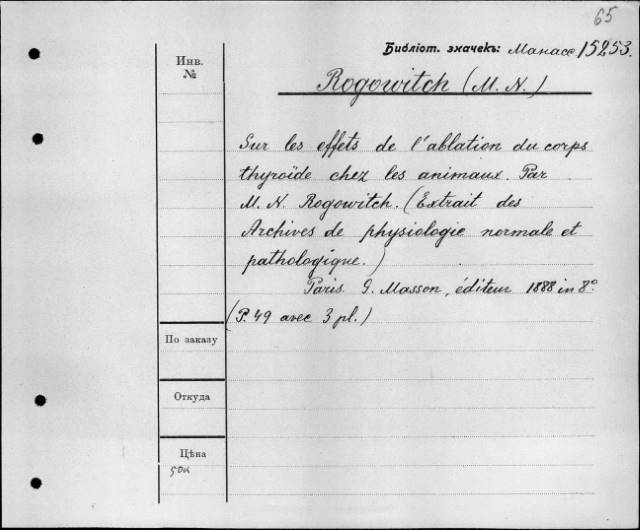 65
Библіот. значекъ: Манассе 15253.
Инв.
№
Rogowitch (M. N.)
Sur les effets de l'ablation du corps
thyroïde chez les animaux. Par
M. N. Rogowitch. (Extrait des
Archives de physiologie normale et
pathologique.)
Paris. G. Masson, éditeur 1888 in 8°.
(P. 49 avec 3 pl.)
По заказу
Откуда
Цѣна
50к